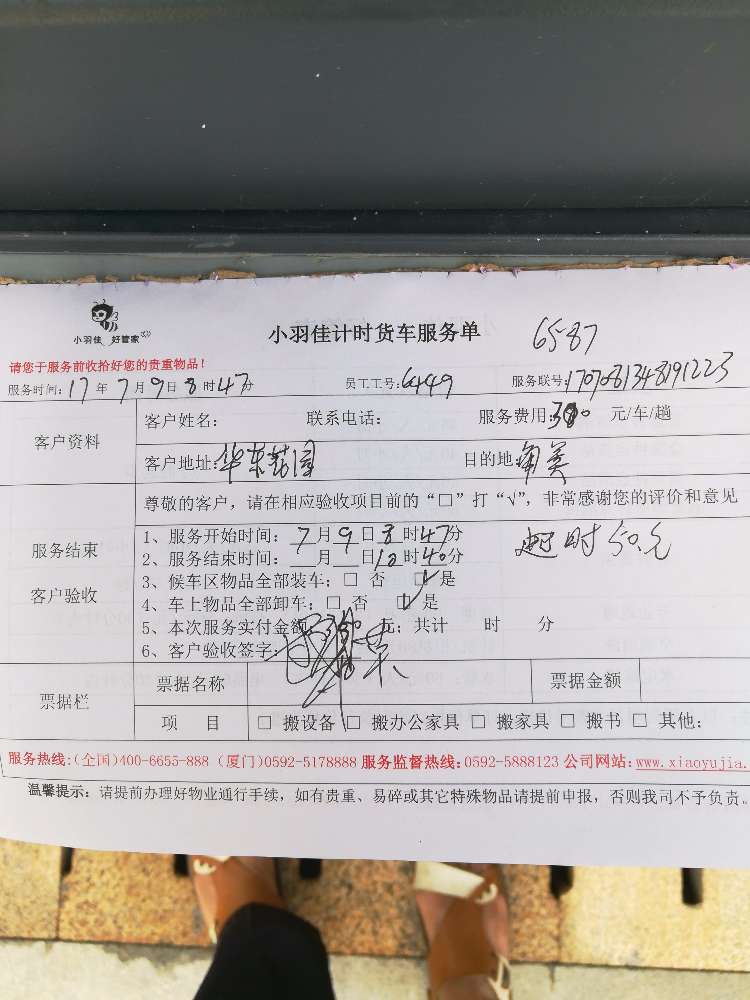 小羽佳 好管家
小羽佳计时货车服务单 6587
请您于服务前收拾好您的贵重物品！
服务时间：17年7月9日8时47分 员工工号：6449 服务联号：
客户资料
客户姓名： 联系电话： 服务费用： 元/车/趟
客户地址：华东花园 目的地：角美
尊敬的客户，请在相应验收项目前的“□”打“√”，非常感谢您的评价和意见
服务结束
客户验收
1、服务开始时间：7月9日8时47分 超时50元
2、服务结束时间： 月 日12时40分
3、候车区物品全部装车：□ 否 ☑ 是
4、车上物品全部卸车：□ 否 ☑ 是
5、本次服务实付金额 元；共计 时 分
6、客户验收签字：
票据栏
票据名称 票据金额
项 目 □ 搬设备 □ 搬办公家具 □ 搬家具 □ 搬书 □ 其他：
服务热线：(全国)400-6655-888 (厦门)0592-5178888 服务监督热线：0592-5888123 公司网站：www.xiaoyujia.
温馨提示：请提前办理好物业通行手续，如有贵重、易碎或其它特殊物品请提前申报，否则我司不予负责。